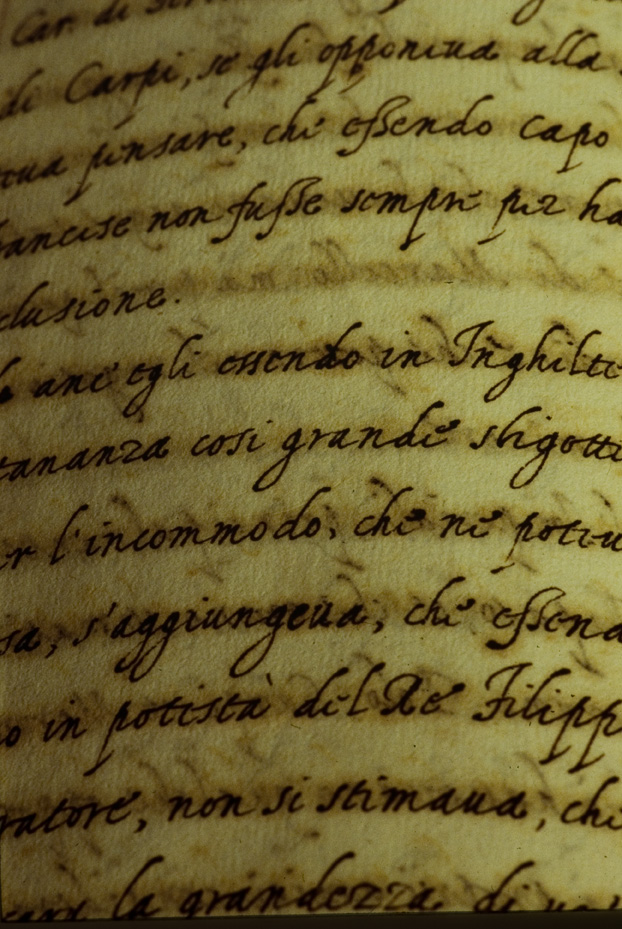 Car. di
di Carpi, se gli opponeua alla
pensare, che essendo capo
non fusse sempre per ha
clusione.
anc'egli essendo in Inghilte
tananza cosi grande sbigotti
l'incommodo, che ne poteu
sa, s'aggiungeua, che essend
o in potestà del Re Filipp
ratore, non si stimaua, che
la grandezza di